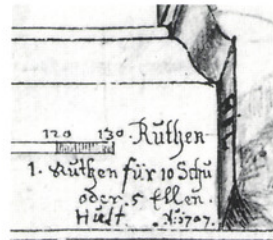 120 130 Ruthen
1. Ruthen für 10 Schu
oder 5 Ellen.
Hult Aº 1707.